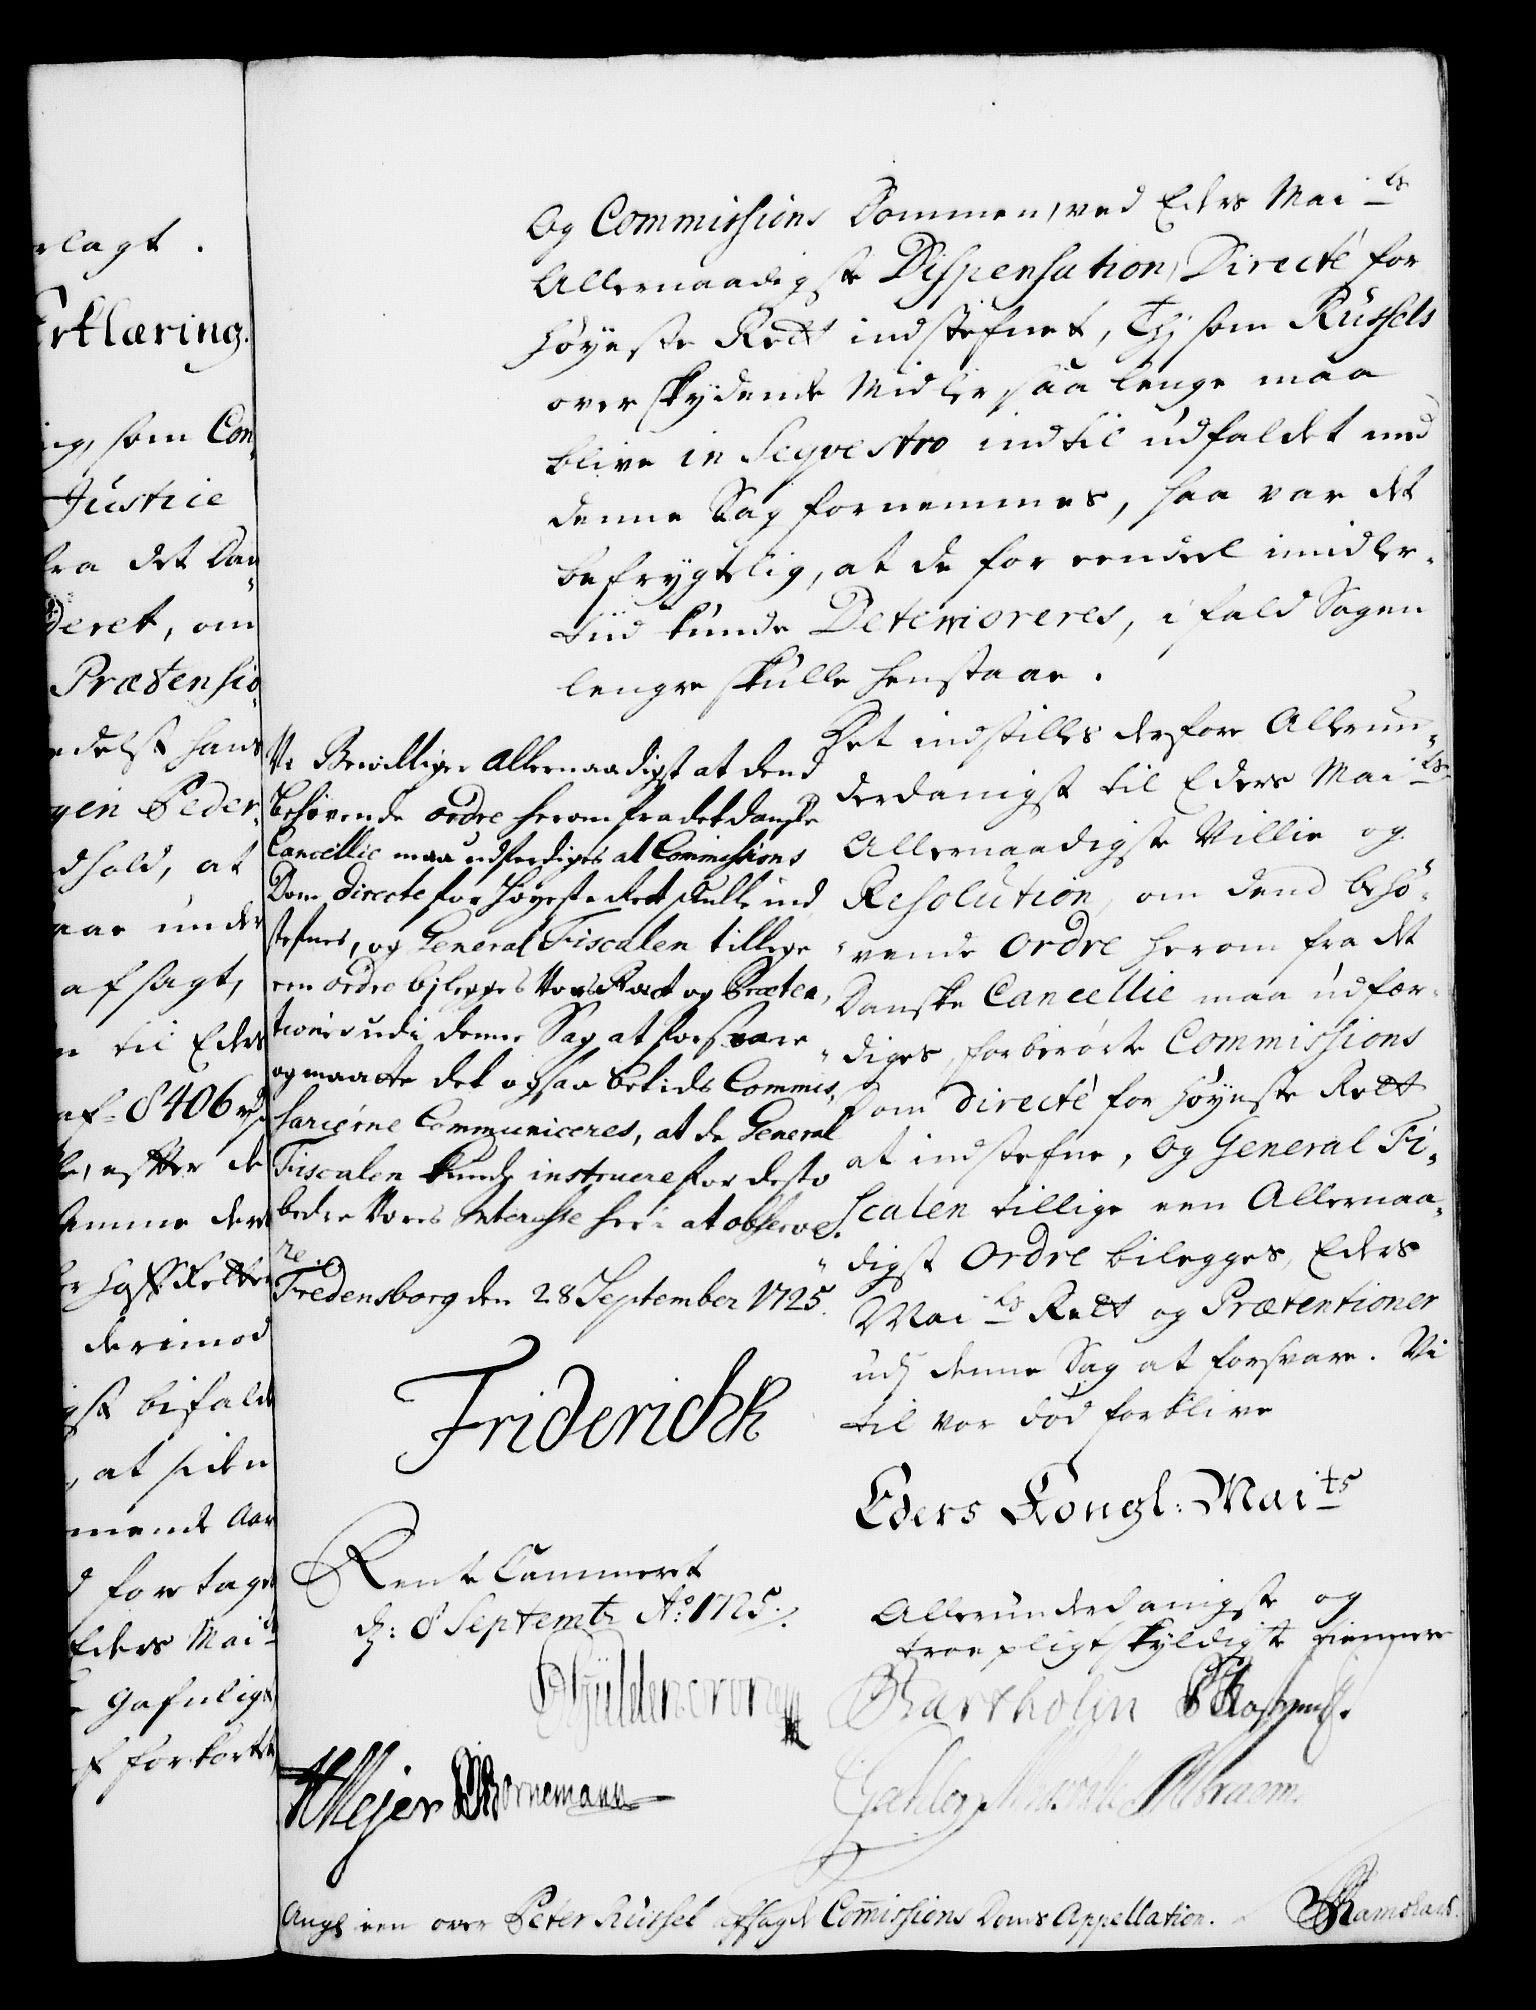 rlagt.
Erklæring.
ing, som Con„
Justice
fra det Dan„
deret, om
Prætensio„
edelst hans
gen Peder„
dhold, at
aar under
afsagt,
n til Eders
af 8406 rd
efter de
Amme der
Hoff Retten
derimod
gst bifalde
, at siden
mende Aar
d foretages
Eders Mai
Og Commissions Dommen, ved Eders Mai ts
Allernaadigste Dispensation, Directé for
Høyeste Rett indstefnet, Thj som Rüssels
overskydende Midler saa lenge maa
blive in Seqvestro indtil udfaldet med
denne Sag fornemmes, saa var det
befrygtelig, at de for eendeel imidler„
tiid kunde Deterioreres, i fald Sagen
lengre skulle henstaae.
Det indstilles derfore Allerun„
derdanigst til Eders Mai ts
Allernaadigste Villie og
Resolution, om dend behø„
vende Ordre herom fra det
Danske Cancellie maa udfær„
diges, forberørte Commissions
Dom directé for Høyeste Rett
at indstefne, og General Fi„
scalen tillige een Allernaa„
digst Ordre bilegges, Eders
Mai ts Rett og Prætentioner
udj denne Sag at forsvare. Vi
til vor död forblive
Eders Kongl: Mai ts
Allerunderdanigste og
troe pligtskyldigste tiennere
Vi Bevilliger Allernaadigst at dend
behøvende ordre herom fra det danske
Cancellie maa udferdiges at Commissions
Dom directe for Høyeste Rett skulle ind
stefnes, og General Fiscalen tillige
een ordre bilegges Vores Ret og Præten„
tioner udi denne Sag at forsvare
og maatte det ogsaa betids Commis„
sarierne Communiceres, at de General
Fiscalen kunde instruere for desto
bedre Vores Interesse heri at observe„
re.
Fredensborg den 28 September 1725.
Friderich R
Rente Cammeret
d: 8 Septembr Ao: 1725.
Güldencrone
Bartholin
HMejer Bornemann
Angl een over Peter Rüssel afsagde Com̅issions Doms Appellation.
Ramshart.